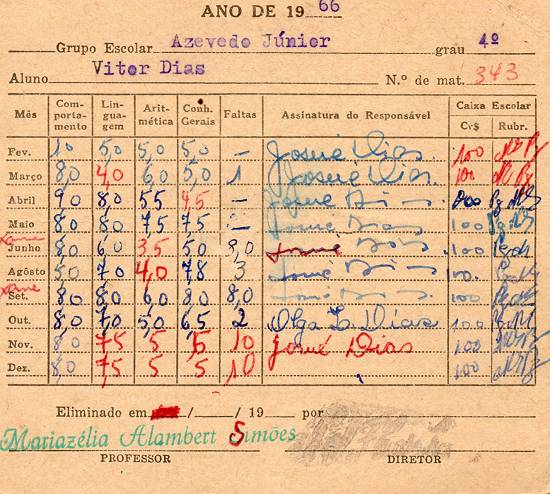 ANO DE 19 66
Grupo Escolar Azevedo Júnior grau 4º
Aluno Vitor Dias N.º de mat. 343
Mês Com-porta-mento Lin-gua-gem Arit-mética Conh. Gerais Faltas Assinatura do Responsável Caixa Escolar Cr$ Rubr.
Fev. 10 50 5,0 50 – Josué Dias 100
Março 8,0 4,0 60 50 1 Josué Dias.
Abril 90 80 55 45 – Josué Dias
Maio 80 80 75 75 – Josué Dias 100
Junho 80 60 35 50 8,0 Josué Dias 100
Agôsto 50 70 4,0 78 3 Josué Dias 100.
Set. 80 80 60 80 8,0 Josué Dias 100
Out. 8,0 70 50 65 2 Olga L. Dias 100
Nov. 80 75 5 5 10 Josué Dias 100
Dez. 80 75 5 5 10 100
Eliminado em / / 19 por
Mariazélia Alambert Simões
PROFESSOR DIRETOR